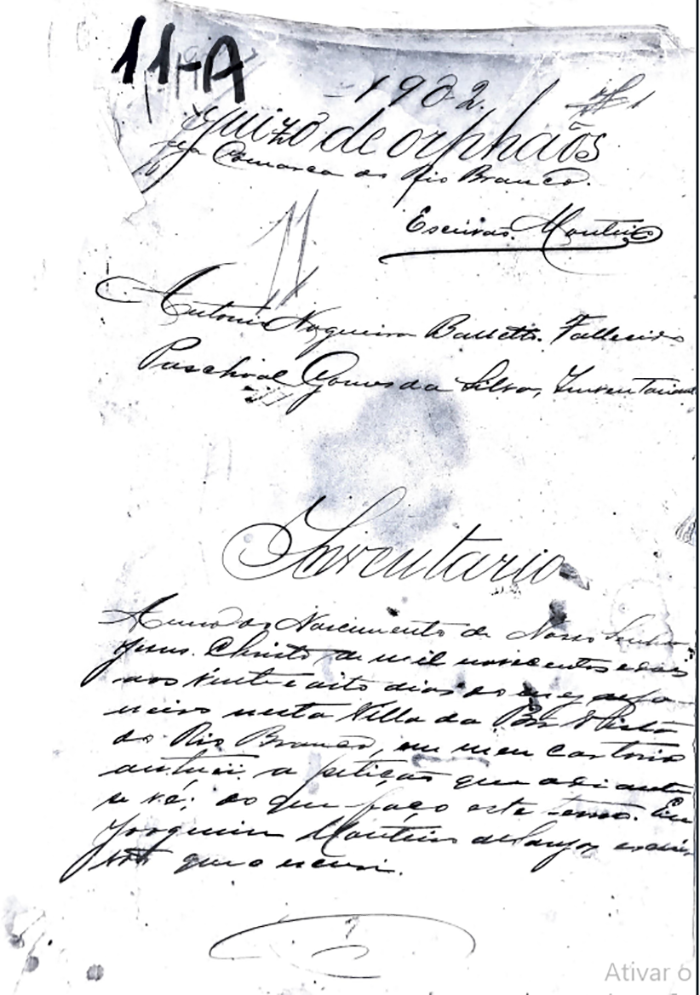 11-A
1902.
Fl 1
Juizo de orphaõs
da Comarca do Rio Branco.
Escrivaõ. Monteiro
11
Antonio Nogueira Barretto. Fallecido
Paschoal Gomes da Silva, Inventariante
Inventario
Anno do Nascimento de Nosso Senhor
Jesus Christo de mil novecentos e dois
aos vinte e oito dias do mez de Ja-
neiro nesta Villa da Bôa Vista
do Rio Branco, em meu cartorio
autuei a petiçaõ que adiante
se vê; do que faço este termo. Eu
Joaquim Monteiro de escri-
vaõ que o escrevi.
Ativar o